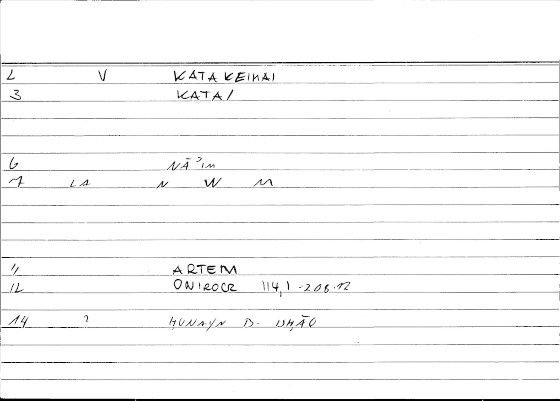 2 V KATAKEIMAI
3 KATA/
6 NĀʾIM
7 LA N W M
11 ARTEM
12 ONIROCR 114,1 - 208.12
14 ? ḤUNAYN B. ISḤĀQ